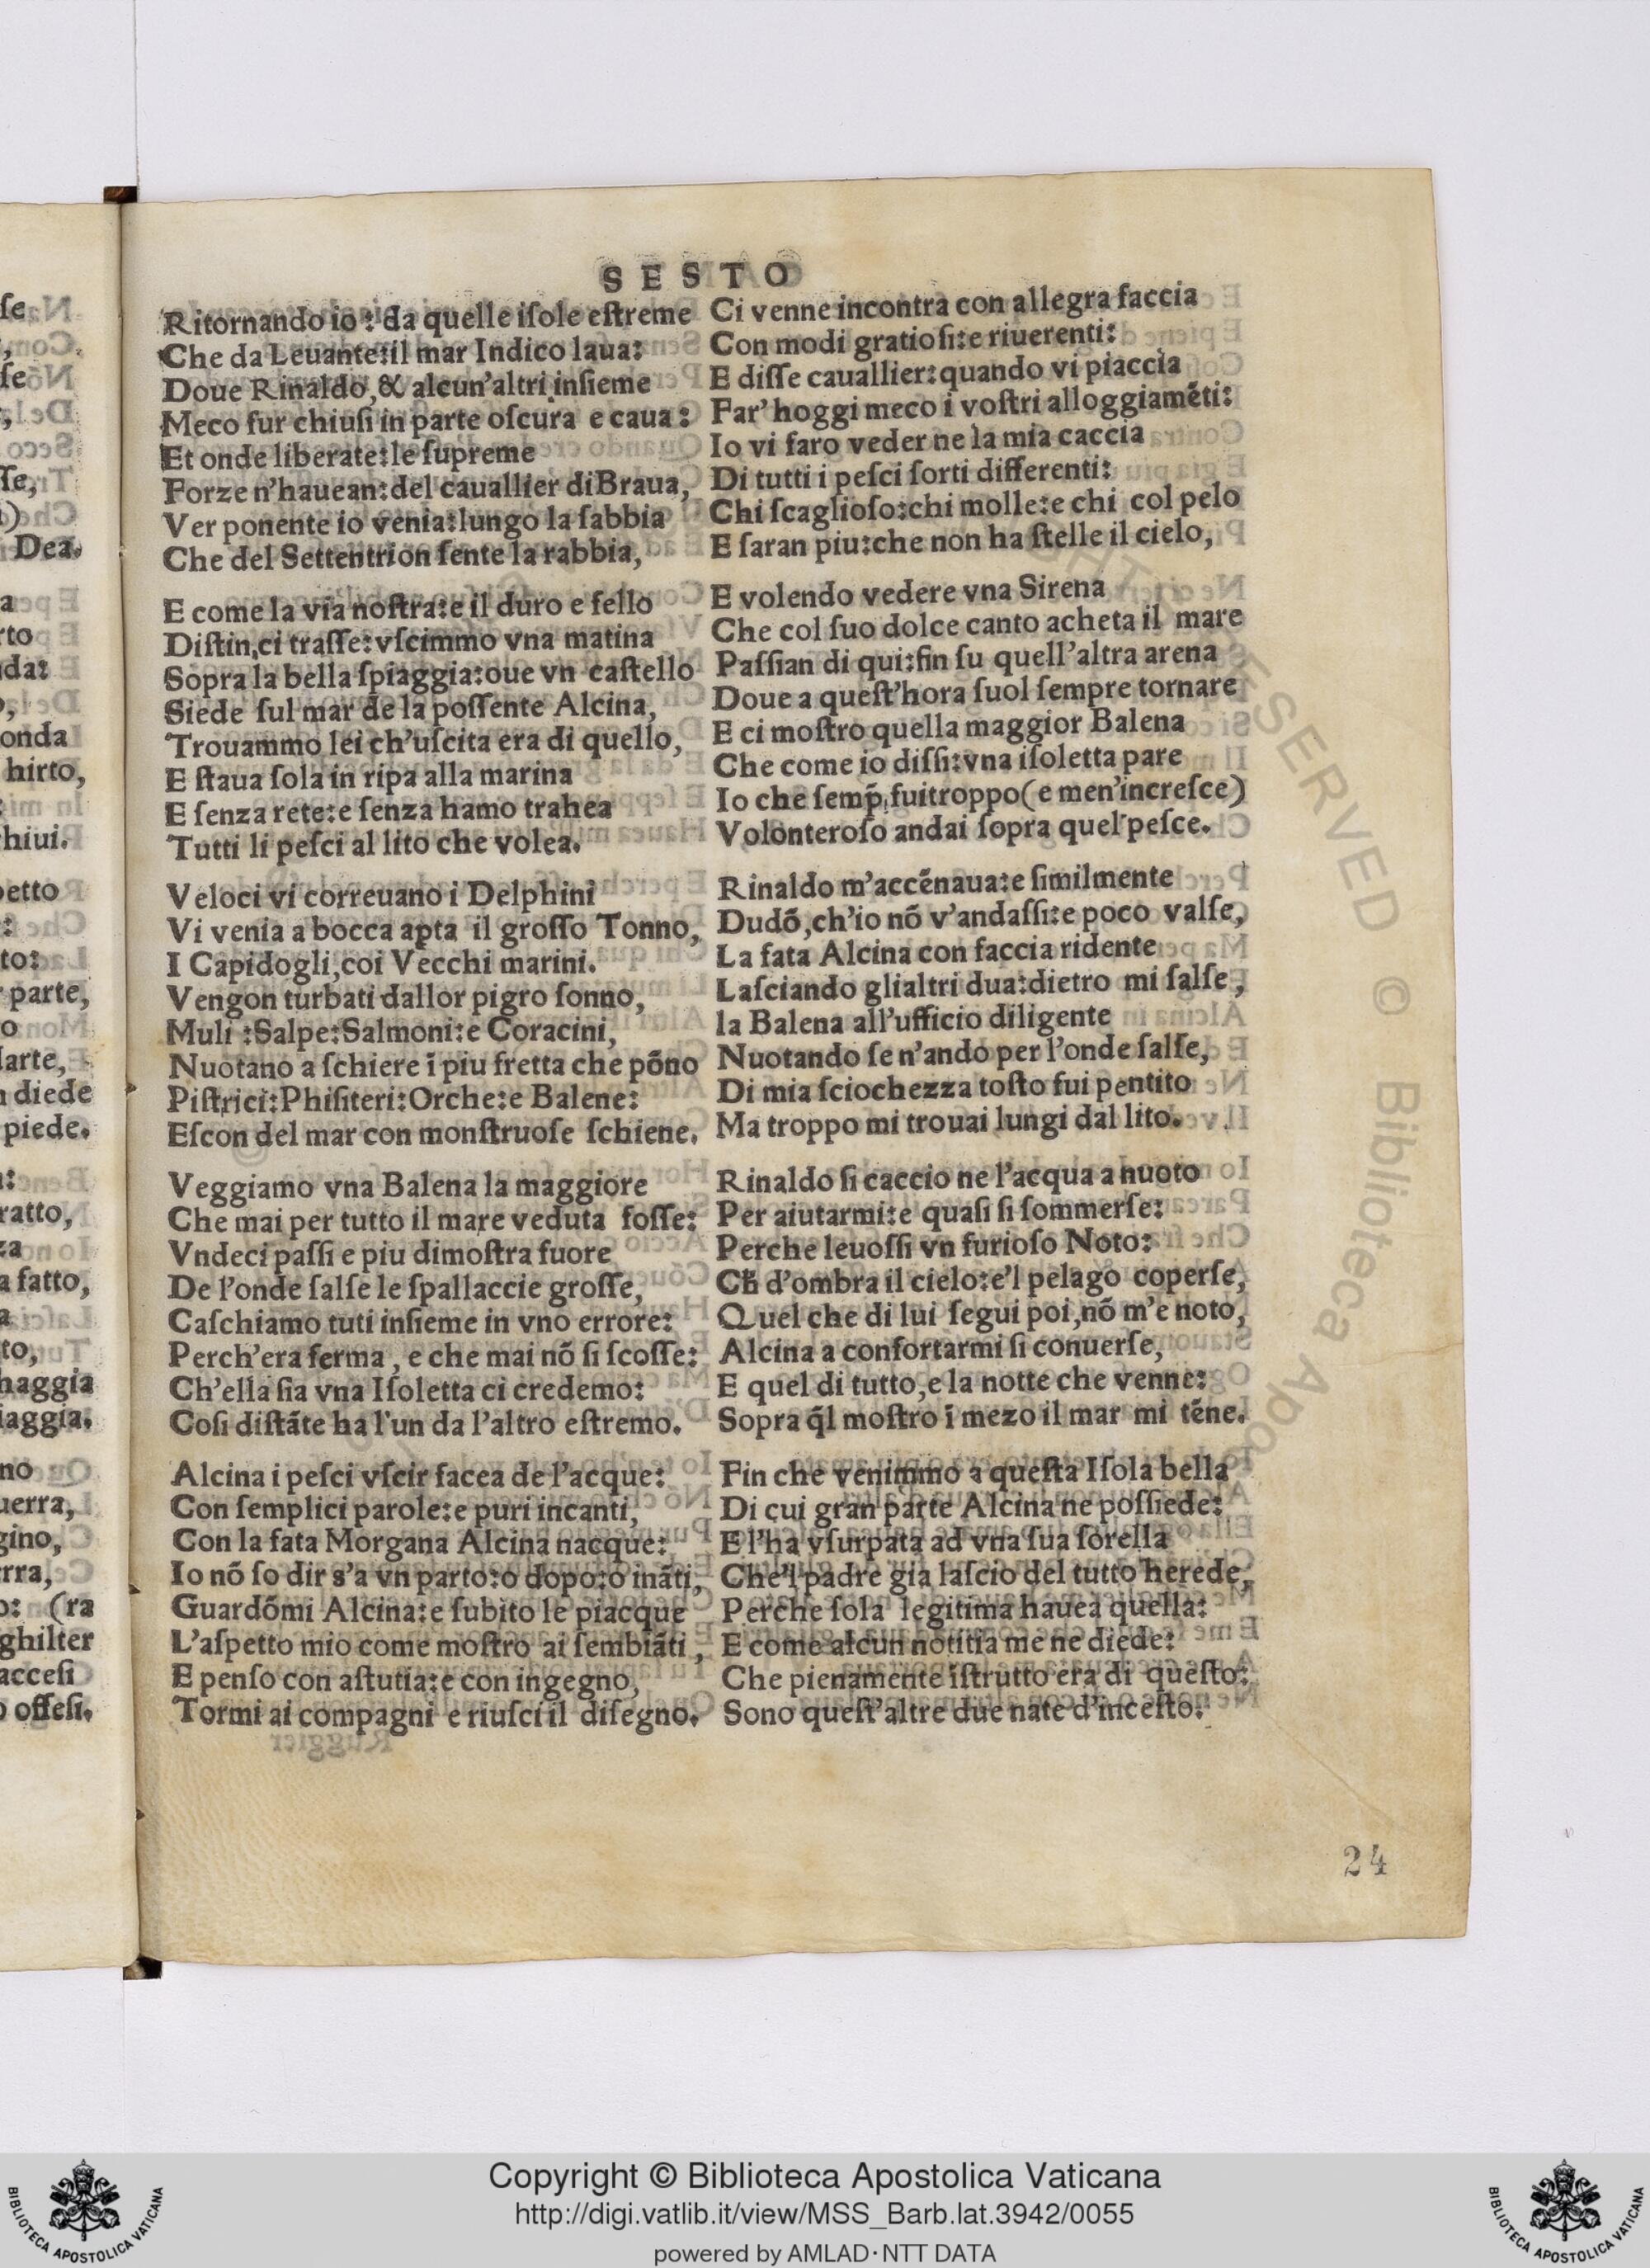 SESTO
Ritornando io : da quelle iſole eſtreme
Che da Leuante:il mar Indico laua:
Doue Rinaldo,& alcun'altri inſieme
Meco fur chiuſi in parte oſcura e caua:
Et onde liberate:le ſupreme
Forze n'hauean:del cauallier diBraua,
Ver ponente io venia:lungo la ſabbia
Che del Settentrion ſente la rabbia,
E come la via noſtra:e il duro e fello
Diſtin,ci traſſe:vſcimmo vna matina
Sopra la bella ſpiaggia:oue vn caſtello
Siede ſul mar de la poſſente Alcina,
Trouammo lei ch'uſcita era di quello,
E ſtaua ſola in ripa alla marina
E ſenza rete:e ſenza hamo trahea
Tutti li peſci al lito che volea.
Veloci vi correuano i Delphini
Vi venia a bocca apta il groſſo Tonno,
I Capidogli,coi Vecchi marini.
Vengon turbati dallor pigro ſonno,
Muli :Salpe:Salmoni:e Coracini,
Nuotano a ſchiere ĩ piu fretta che põno
Piſtrici:Phiſiteri:Orche:e Balene:
Eſcon del mar con monſtruoſe ſchiene.
Veggiamo vna Balena la maggiore
Che mai per tutto il mare veduta foſſe:
Vndeci paſſi e piu dimoſtra fuore
De l'onde ſalſe le ſpallaccie groſſe,
Caſchiamo tuti inſieme in vno errore:
Perch'era ferma , e che mai nõ ſi ſcoſſe:
Ch'ella ſia vna Iſoletta ci credemo:
Coſi diſtãte ha l'un da l'altro eſtremo.
Alcina i peſci vſcir facea de l'acque:
Con ſemplici parole:e puri incanti,
Con la fata Morgana Alcina nacque:
Io nõ ſo dir s'a vn parto:o dopo:o inãti,
Guardõmi Alcina:e ſubito le piacque
L'aſpetto mio come moſtro ai ſembiãti ,
E penſo con aſtutia:e con ingegno,
Tormi ai compagni e riuſci il diſegno.
Ci venne incontra con allegra faccia
Con modi gratioſi:e riuerenti:
E diſſe cauallier:quando vi piaccia
Far'hoggi meco i voſtri alloggiamẽti:
Io vi faro veder ne la mia caccia
Di tutti i peſci ſorti differenti:
Chi ſcaglioſo:chi molle:e chi col pelo
E ſaran piu:che non ha ſtelle il cielo,
E volendo vedere vna Sirena
Che col ſuo dolce canto acheta il mare
Paſſian di qui:fin ſu quell'altra arena
Doue a queſt'hora ſuol ſempre tornare
E ci moſtro quella maggior Balena
Che come io diſſi:vna iſoletta pare
Io che ſemp̃ fuitroppo(e men'increſce)
Volonteroſo andai ſopra quel peſce.
Rinaldo m'accẽnaua:e ſimilmente
Dudõ,ch'io nõ v'andaſſi:e poco valſe,
La fata Alcina con faccia ridente
Laſciando glialtri dua:dietro mi ſalſe,
la Balena all'ufficio diligente
Nuotando ſe n'ando per l'onde ſalſe,
Di mia ſciochezza toſto fui pentito
Ma troppo mi trouai lungi dal lito.
Rinaldo ſi caccio ne l'acqua a nuoto
Per aiutarmi:e quaſi ſi ſommerſe:
Perche leuoſſi vn furioſo Noto:
Ch̃ d'ombra il cielo:e'l pelago coperſe,
Quel che di lui ſegui poi,nõ m'e noto,
Alcina a confortarmi ſi conuerſe,
E quel di tutto,e la notte che venne:
Sopra q̃l moſtro ĩ mezo il mar mi tẽne.
Fin che venimmo a queſta Iſola bella
Di cui gran parte Alcina ne poſſiede:
E l'ha vſurpata ad vna ſua ſorella
Che'l padre gia laſcio del tutto herede,
Perche ſola legitima hauea quella:
E come alcun notitia me ne diede:
Che pienamente iſtrutto era di queſto:
Sono queſt'altre due nate d'inceſto.
24
Copyright © Biblioteca Apostolica Vaticana
http://digi.vatlib.it/view/MSS_Barb.lat.3942/0055
powered by AMLAD·NTT DATA
BIBLIOTECA APOSTOLICA VATICANA
BIBLIOTECA APOSTOLICA VATICANA